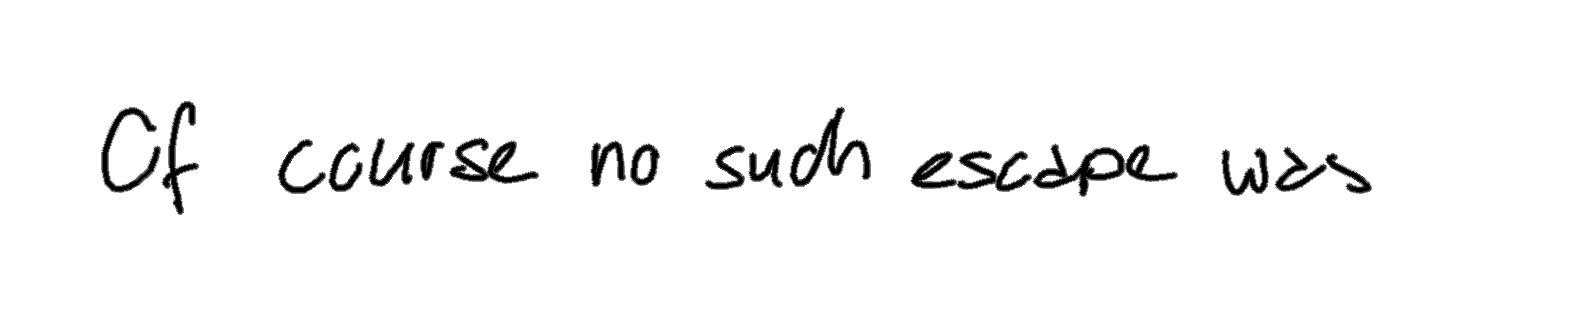 Of course no such escape was